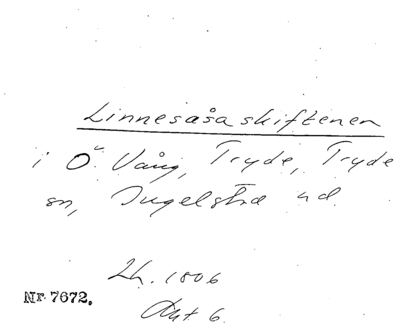 Linnesåsa skiftenen
i Ö. Vång, Tryde, Tryde
sn, Ingelsta hd.
Lh. 1806
Akt 6.
Nr 7672.